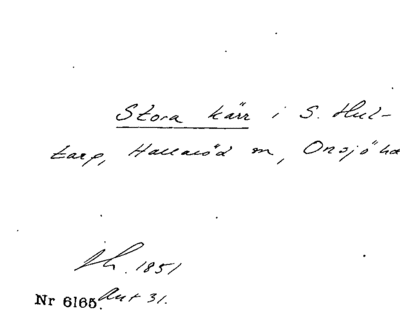 Stora kärr i S. Hul-
tarp, Hallaröd m, Onsjö hd
1851
Nr 6165. Ant 31.